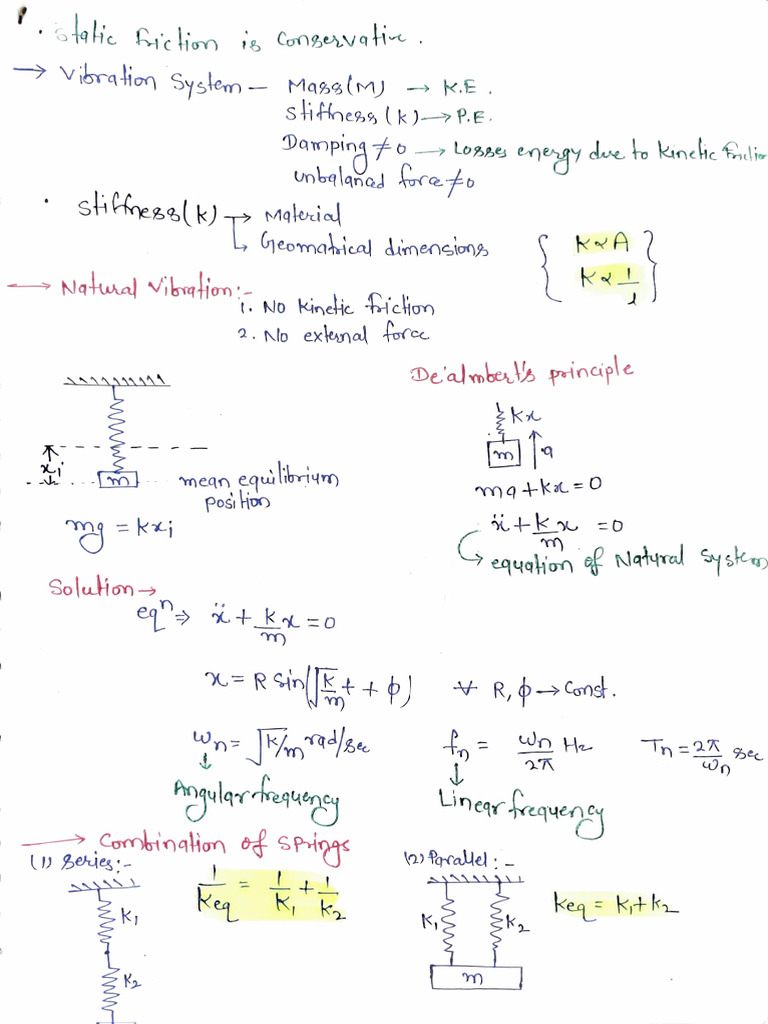 · Static friction is conservative.
→ Vibration System - Mass(M) → K.E.
Stiffness (k) → P.E.
Damping ≠ 0 → Losses energy due to kinetic friction
unbalanced force ≠ 0
· Stiffness(k) → Material
↳ Geomatrical dimensions
{ K ∝ A
K ∝ 1/l }
→ Natural Vibration:-
1. No kinetic friction
2. No external force
De'almbert's principle
kx
m
a
xi
m
mean equilibrium
position
mg = kxi
ma + kx = 0
ẍ + k/m x = 0
↳ equation of Natural System
Solution →
eqⁿ ⇒ ẍ + k/m x = 0
x = R sin(√k/m t + ϕ) ∀ R, ϕ → Const.
ωn = √k/m rad/sec
fn = ωn/2π Hz
Tn = 2π/ωn sec
Angular frequency
Linear frequency
→ Combination of Springs
(1) Series:-
K1
K2
1/Keq = 1/K1 + 1/K2
(2) Parallel:-
K1
K2
m
Keq = K1 + K2